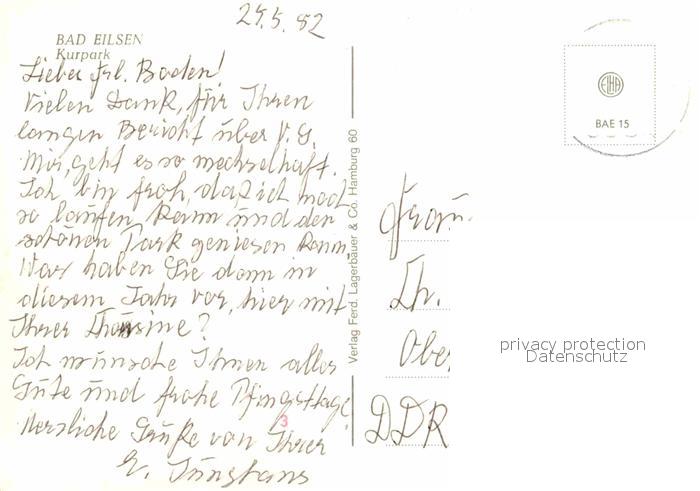 24.5.82
BAD EILSEN
Kurpark
Lieber Frl. Baden!
Vielen Dank, für Ihren
langen Bericht über V. G.
Mir, geht es so wechselhaft.
Ich bin froh, daß ich noch
so laufen kann und den
schönen Park geniesen kann.
Was haben Sie dann in
diesem Jahr vor, hier mit
Ihrer Chousine?
Ich wünsche Ihnen alles
Gute und frohe Pfingsttage
Herzliche Grüße von Ihrer
E. Junghans
3
Verlag Ferd. Lagerbauer & Co. Hamburg 60
EIHA
BAE 15
Frau
Th.
Ober
DDR
privacy protection
Datenschutz